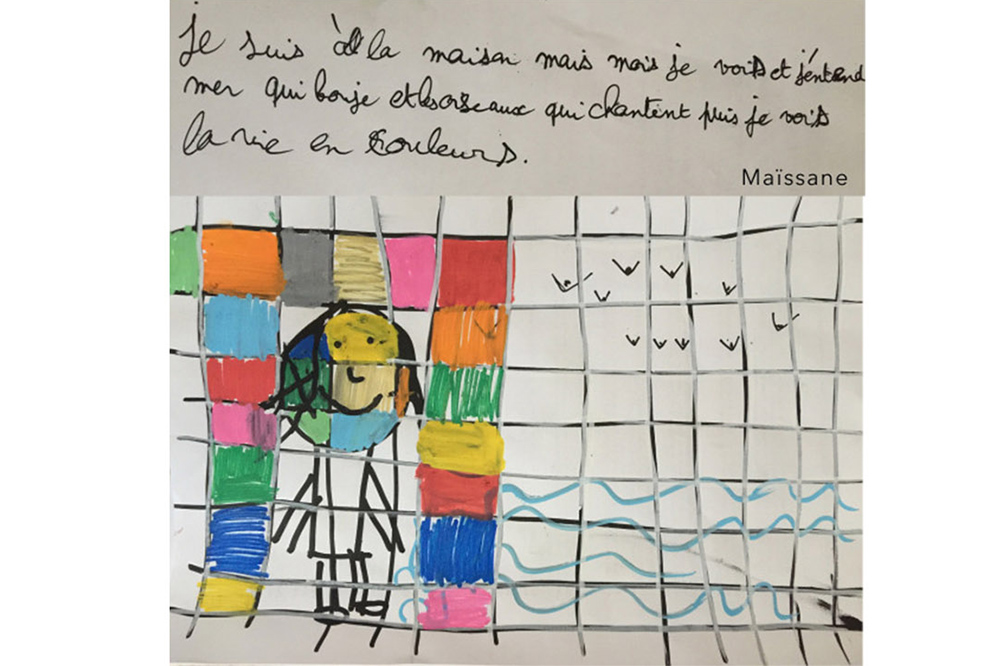 je suis à la maison mais mois je vois et j'éntend
mer qui bouje et les oiseaux qui chantent puis je vois
la vie en couleurs.
Maïssane